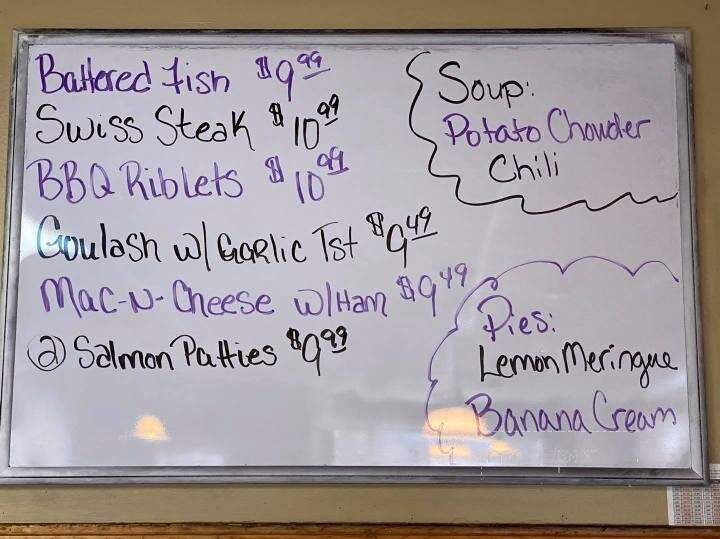 Battered Fish $9.99
Swiss Steak $10.99
BBQ Riblets $10.99
Goulash w/ Garlic Tst $9.49
Mac-N-Cheese w/Ham $9.49
② Salmon Patties $9.99
Soup:
Potato Chowder
Chili
Pies:
Lemon Meringue
Banana Cream